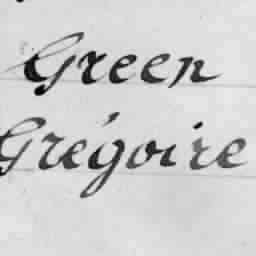 Green
Grégoire